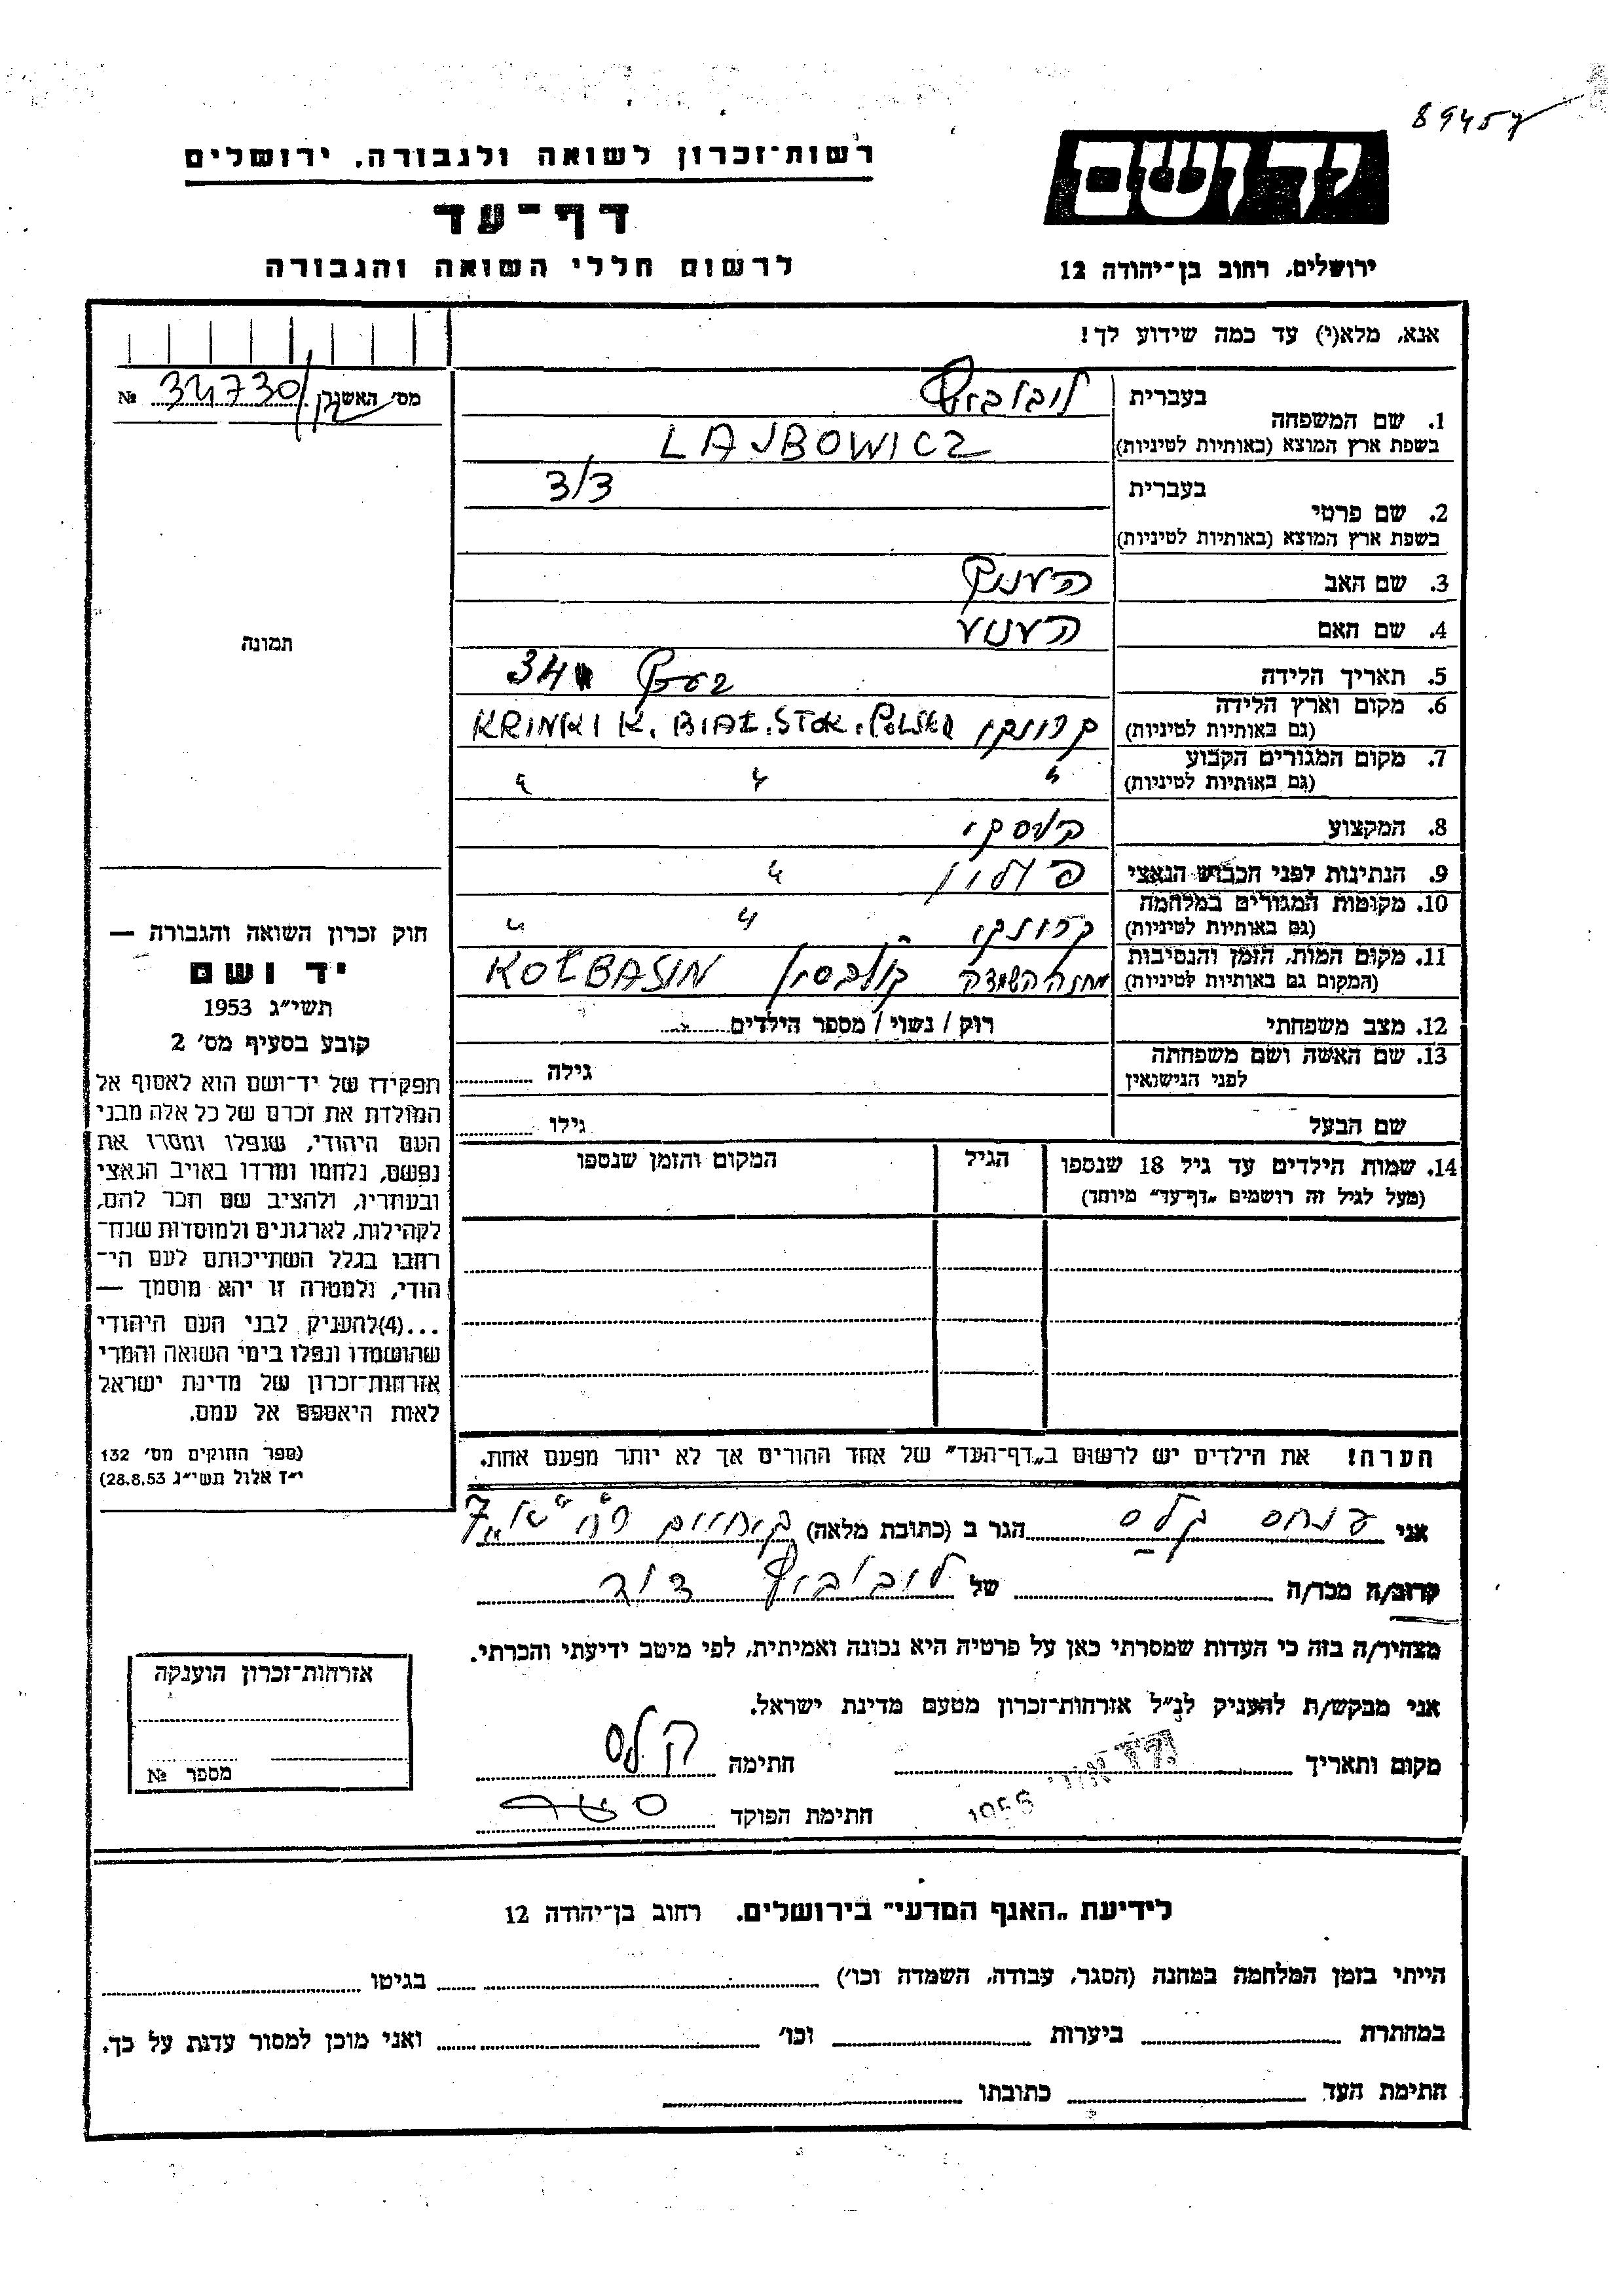 89457
יד ושם
רשות־זכרון לשואה ולגבורה, ירושלים
דף־עד
לרשום חללי השואה והגבורה
ירושלים, רחוב בן־יהודה 12
אנא, מלא(י) עד כמה שידוע לך!
מס׳ האשנב № 34730
1. שם המשפחה בעברית לובוביץ
בשפת ארץ המוצא (באותיות לטיניות) LAJBOWICZ
2. שם פרטי בעברית דוד
בשפת ארץ המוצא (באותיות לטיניות)
3. שם האב
4. שם האם
5. תאריך הלידה בערך 34
6. מקום וארץ הלידה (גם באותיות לטיניות) קרינקי KRINKI K. BIAŁ.STOK. POLSKA
7. מקום המגורים הקבוע (גם באותיות לטיניות) " " "
8. המקצוע
9. הנתינות לפני הכבוש הנאצי פולין "
10. מקומות המגורים במלחמה (גם באותיות לטיניות) קרינקי " "
11. מקום המות, הזמן והנסיבות (המקום גם באותיות לטיניות) מחנה השמדה קולבסין KOŁBASIN
12. מצב משפחתי רוק / נשוי / מספר הילדים
13. שם האשה ושם משפחתה לפני הנישואין גילה
שם הבעל גילו
14. שמות הילדים עד גיל 18 שנספו הגיל המקום והזמן שנספו
(מעל לגיל זה רושמים „דף־עד״ מיוחד)
הערה! את הילדים יש לרשום ב„דף־העד״ של אחד ההורים אך לא יותר מפעם אחת.
תמונה
חוק זכרון השואה והגבורה —
יד ושם
תשי״ג 1953
קובע בסעיף מס׳ 2
תפקידו של יד־ושם הוא לאסוף אל
המולדת את זכרם של כל אלה מבני
העם היהודי, שנפלו ומסרו את
נפשם, נלחמו ומרדו באויב הנאצי
ובעוזריו, ולהציב שם וזכר להם,
לקהילות, לארגונים ולמוסדות שנח־
רבו בגלל השתייכותם לעם הי־
הודי, ולמטרה זו יהא מוסמך —
...(4)להעניק לבני העם היהודי
שהושמדו ונפלו בימי השואה והמרי
אזרחות־זכרון של מדינת ישראל
לאות היאספם אל עמם.
(ספר החוקים מס׳ 132
י״ז אלול תשי״ג 28.8.53)
אני פנחס קלס הגר ב (כתובת מלאה)
קרוב/ה מכר/ה של לובוביץ דוד
מצהיר/ה בזה כי העדות שמסרתי כאן על פרטיה היא נכונה ואמיתית, לפי מיטב ידיעתי והכרתי.
אני מבקש/ת להעניק לנ״ל אזרחות־זכרון מטעם מדינת ישראל.
מקום ותאריך 1956 חתימה קלס
חתימת הפוקד
אזרחות־זכרון הוענקה
מספר №
לידיעת „האגף המדעי״ בירושלים. רחוב בן־יהודה 12
הייתי בזמן המלחמה במחנה (הסגר, עבודה, השמדה וכו׳) בגיטו
במחתרת ביערות וכו׳ ואני מוכן למסור עדות על כך.
חתימת העד כתובתו